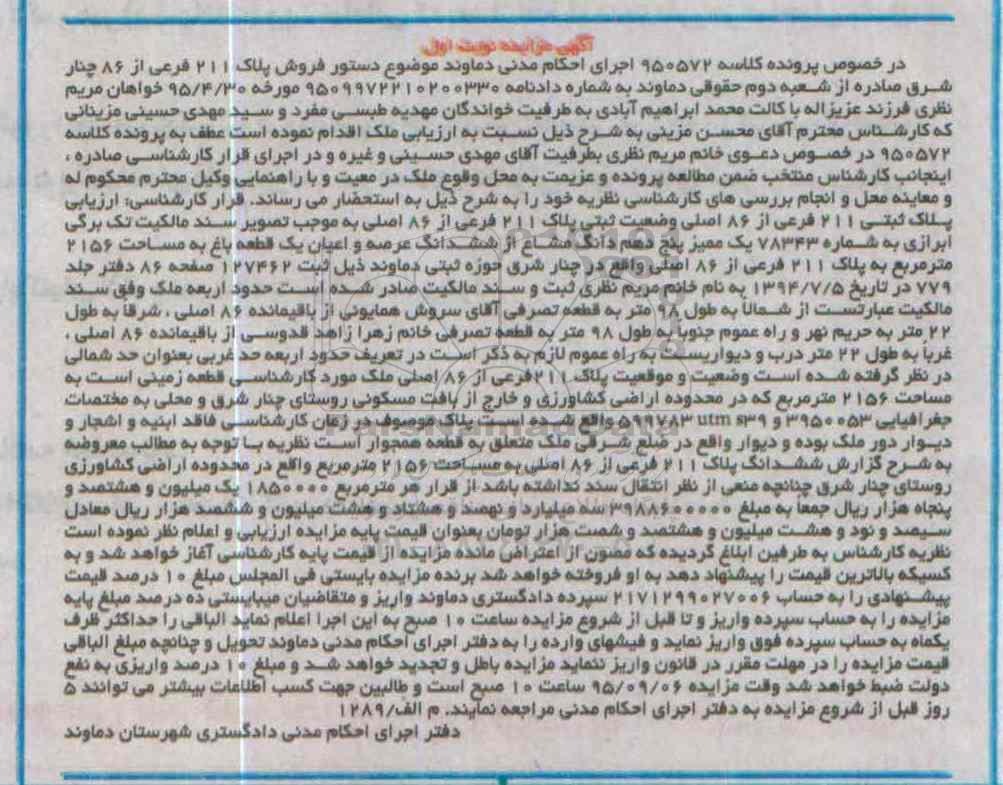 آگهی مزایده نوبت اول
در خصوص پرونده کلاسه ۹۵۰۵۷۲ اجرای احکام مدنی دماوند موضوع دستور فروش پلاک ۲۱۱ فرعی از ۸۶ چنار
شرق صادره از شعبه دوم حقوقی دماوند به شماره دادنامه ۹۵۰۹۹۷۲۲۱۰۲۰۰۳۳۰ مورخه ۹۵/۴/۳۰ خواهان مریم
نظری فرزند عزیزاله با کالت محمد ابراهیم آبادی به طرفیت خواندگان مهدیه طبسی مفرد و سید مهدی حسینی مزینانی
که کارشناس محترم آقای محسن مزینی به شرح ذیل نسبت به ارزیابی ملک اقدام نموده است عطف به پرونده کلاسه
۹۵۰۵۷۲ در خصوص دعوی خانم مریم نظری بطرفیت آقای مهدی حسینی و غیره و در اجرای قرار کارشناسی صادره ،
اینجانب کارشناس منتخب ضمن مطالعه پرونده و عزیمت به محل وقوع ملک در معیت و با راهنمایی وکیل محترم محکوم له
و معاینه محل و انجام بررسی های کارشناسی نظریه خود را به شرح ذیل به استحضار می رساند. قرار کارشناسی: ارزیابی
پلاک ثبتی ۲۱۱ فرعی از ۸۶ اصلی وضعیت ثبتی پلاک ۲۱۱ فرعی از ۸۶ اصلی به موجب تصویر سند مالکیت تک برگی
ابرازی به شماره ۷۸۳۴۳ یک ممیز پنج دهم دانگ مشاع از ششدانگ عرصه و اعیان یک قطعه باغ به مساحت ۲۱۵۶
مترمربع به پلاک ۲۱۱ فرعی از ۸۶ اصلی واقع در چنار شرق حوزه ثبتی دماوند ذیل ثبت ۱۲۷۴۶۲ صفحه ۸۶ دفتر جلد
۷۷۹ در تاریخ ۱۳۹۴/۷/۵ به نام خانم مریم نظری ثبت و سند مالکیت صادر شده است حدود اربعه ملک وفق سند
مالکیت عبارتست از شمالاً به طول ۹۸ متر به قطعه تصرفی آقای سروش همایونی از باقیمانده ۸۶ اصلی ، شرقا به طول
۲۲ متر به حریم نهر و راه عموم جنوباً به طول ۹۸ متر به قطعه تصرفی خانم زهرا زاهد قدوسی از باقیمانده ۸۶ اصلی ،
غرباً به طول ۲۲ متر درب و دیواریست به راه عموم لازم به ذکر است در تعریف حدود اربعه حد غربی بعنوان حد شمالی
در نظر گرفته شده است وضعیت و موقعیت پلاک ۲۱۱فرعی از ۸۶ اصلی ملک مورد کارشناسی قطعه زمینی است به
مساحت ۲۱۵۶ مترمربع که در محدوده اراضی کشاورزی و خارج از بافت مسکونی روستای چنار شرق و محلی به مختصات
جغرافیایی ۳۹۵۰۰۵۳ و ۵۹۹۷۸۳ utm s۳۹ واقع شده است پلاک موصوف در زمان کارشناسی فاقد ابنیه و اشجار و
دیوار دور ملک بوده و دیوار واقع در ضلع شرقی ملک متعلق به قطعه همجوار است نظریه با توجه به مطالب معروضه
به شرح گزارش ششدانگ پلاک ۲۱۱ فرعی از ۸۶ اصلی به مساحت ۲۱۵۶ مترمربع واقع در محدوده اراضی کشاورزی
روستای چنار شرق چنانچه منعی از نظر انتقال سند نداشته باشد از قرار هر مترمربع ۱۸۵۰۰۰۰ یک میلیون و هشتصد و
پنجاه هزار ریال جمعا به مبلغ ۳۹۸۸۶۰۰۰۰۰ سه میلیارد و نهصد و هشتاد و هشت میلیون و ششصد هزار ریال معادل
سیصد و نود و هشت میلیون و هشتصد و شصت هزار تومان بعنوان قیمت پایه مزایده ارزیابی و اعلام نظر نموده است
نظریه کارشناس به طرفین ابلاغ گردیده که مصون از اعتراض مانده مزایده از قیمت پایه کارشناسی آغاز خواهد شد و به
کسیکه بالاترین قیمت را پیشنهاد دهد به او فروخته خواهد شد برنده مزایده بایستی فی المجلس مبلغ ۱۰ درصد قیمت
پیشنهادی را به حساب ۲۱۷۱۲۹۹۰۲۷۰۰۶ سپرده دادگستری دماوند واریز و متقاضیان میبایستی ده درصد مبلغ پایه
مزایده را به حساب سپرده واریز و تا قبل از شروع مزایده ساعت ۱۰ صبح به این اجرا اعلام نماید الباقی را حداکثر ظرف
یکماه به حساب سپرده فوق واریز نماید و فیشهای وارده را به دفتر اجرای احکام مدنی دماوند تحویل و چنانچه مبلغ الباقی
قیمت مزایده را در مهلت مقرر در قانون واریز ننماید مزایده باطل و تجدید خواهد شد و مبلغ ۱۰ درصد واریزی به نفع
دولت ضبط خواهد شد وقت مزایده ۹۵/۰۹/۰۶ ساعت ۱۰ صبح است و طالبین جهت کسب اطلاعات بیشتر می توانند ۵
روز قبل از شروع مزایده به دفتر اجرای احکام مدنی مراجعه نمایند. م الف/۱۲۸۹
دفتر اجرای احکام مدنی دادگستری شهرستان دماوند